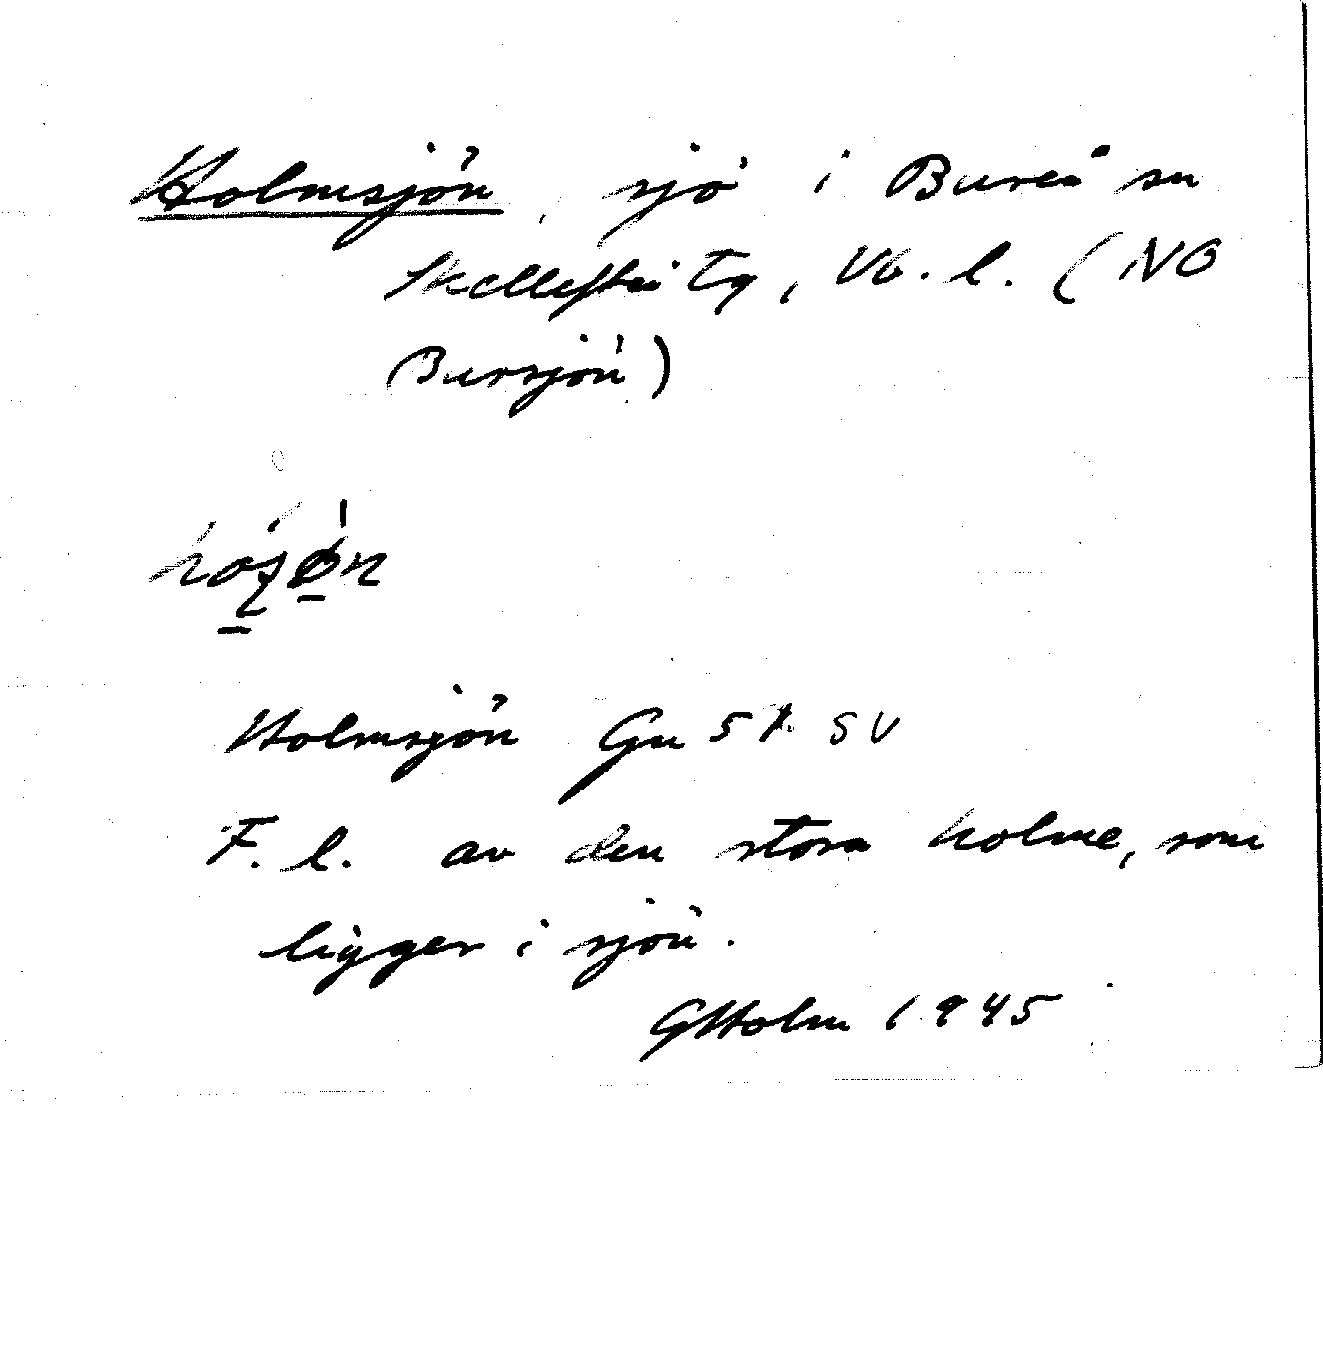 Holmsjön, sjö i Bureå sn
Skellefteå tg, Vb. l. (NO
Bursjön)
Holmsjön Gu 51. SV
F. l. av den stora holme, som
ligger i sjön.
GHolm 1945